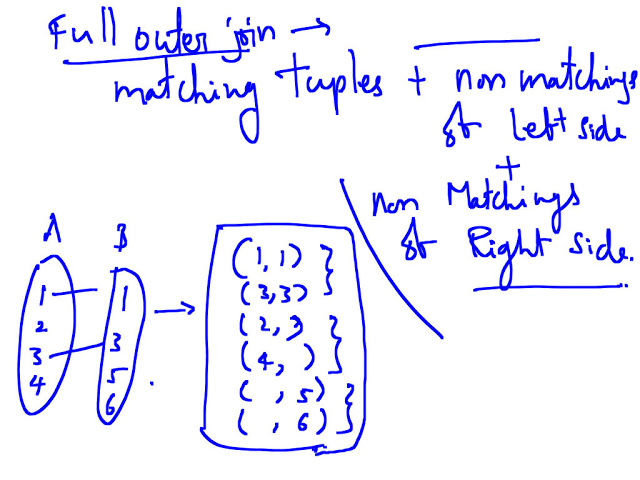 Full outer join →
matching tuples + non matchings
of Left side
+
non Matchings
of Right side.
A B
1 1
2
3 3
4 5
6
(1, 1)
(3, 3)
(2, )
(4, )
( , 5)
( , 6)